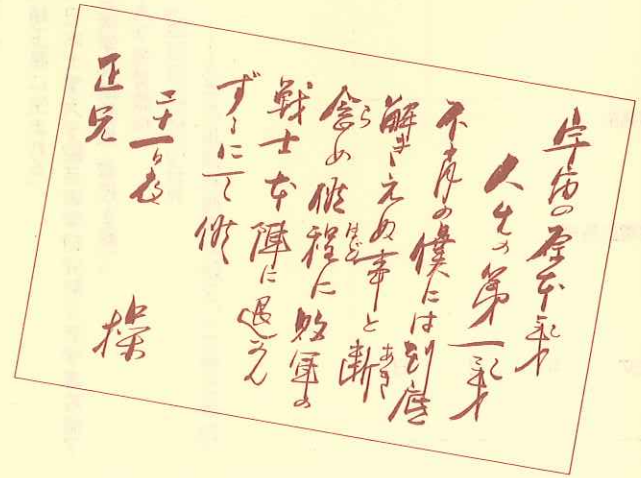 宇宙の原本義
人生の第一義
不肖の僕には到底
解きえぬ事と断あき
念らめ候程ほどに敗軍の
戦士本陣に退かん
ずるにて候
二十一日夜　操
正兄